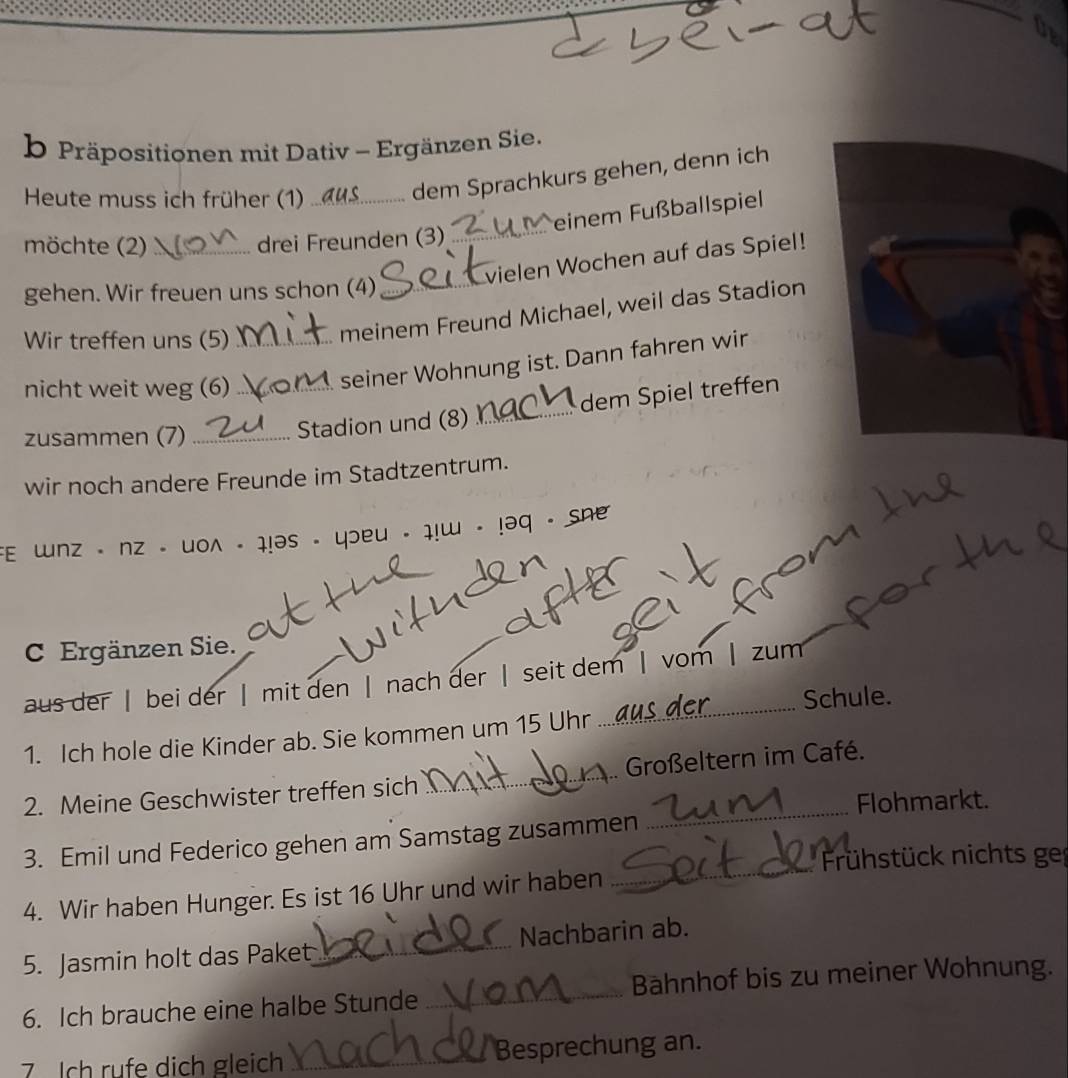 d bei-at
b Präpositionen mit Dativ – Ergänzen Sie.
Heute muss ich früher (1) aus dem Sprachkurs gehen, denn ich
möchte (2) von drei Freunden (3) zum einem Fußballspiel
gehen. Wir freuen uns schon (4) Seit vielen Wochen auf das Spiel!
Wir treffen uns (5) mit meinem Freund Michael, weil das Stadion
nicht weit weg (6) vom seiner Wohnung ist. Dann fahren wir
zusammen (7) zu Stadion und (8) nach dem Spiel treffen
wir noch andere Freunde im Stadtzentrum.
aus • bei • mit • nach • seit • von • zu • zum
at the
with den
after
seit
from the
for the
C Ergänzen Sie.
aus der | bei der | mit den | nach der | seit dem | vom | zum
1. Ich hole die Kinder ab. Sie kommen um 15 Uhr aus der Schule.
2. Meine Geschwister treffen sich mit den Großeltern im Café.
3. Emil und Federico gehen am Samstag zusammen zum Flohmarkt.
4. Wir haben Hunger. Es ist 16 Uhr und wir haben Seit dem Frühstück nichts ge
5. Jasmin holt das Paket bei der Nachbarin ab.
6. Ich brauche eine halbe Stunde vom Bahnhof bis zu meiner Wohnung.
7. Ich rufe dich gleich nach der Besprechung an.